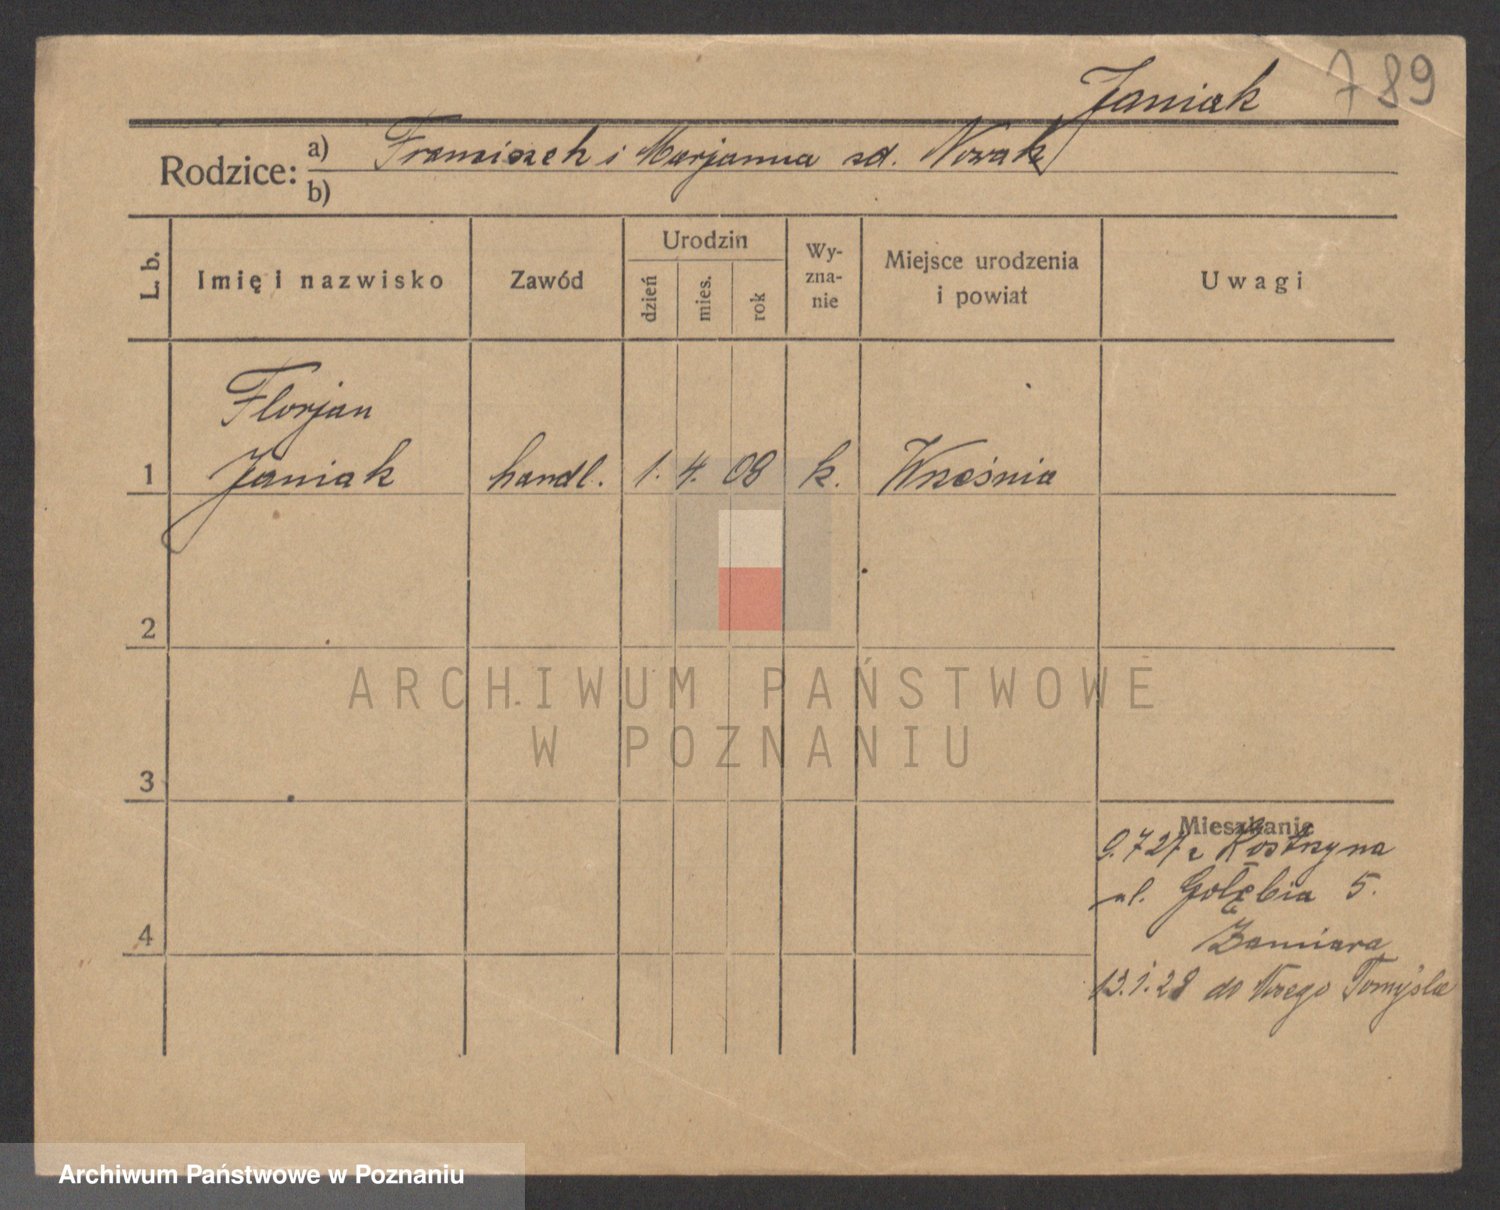 Janiak 789
Rodzice: a) Franciszek i Marjanna zd. Nowak
b)
L. b. Imię i nazwisko Zawód Urodzin dzień mies. rok Wy-zna-nie Miejsce urodzenia i powiat Uwagi
Florjan
1 Janiak handl. 1. 4. 08 k. Września
2
3
Mieszkanie
9.7 27 z Kostrzyna
ul. Gołębia 5.
4
13.1.28 do Nowego Tomyśla
ARCHIWUM PAŃSTWOWE
W POZNANIU
Archiwum Państwowe w Poznaniu